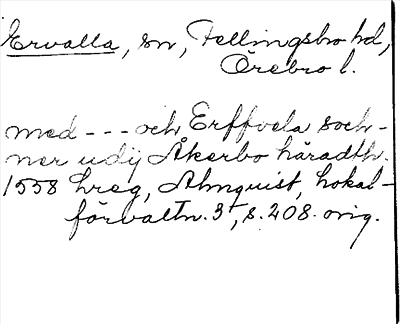 Ervalla, sn, Fellingsbro hd,
Örebro l.
med --- och Erffvela soch-
ner udij Åkerbo häradth.
1558 hreg, Almquist, Lokal-
förvaltn. 3, s. 208. orig.